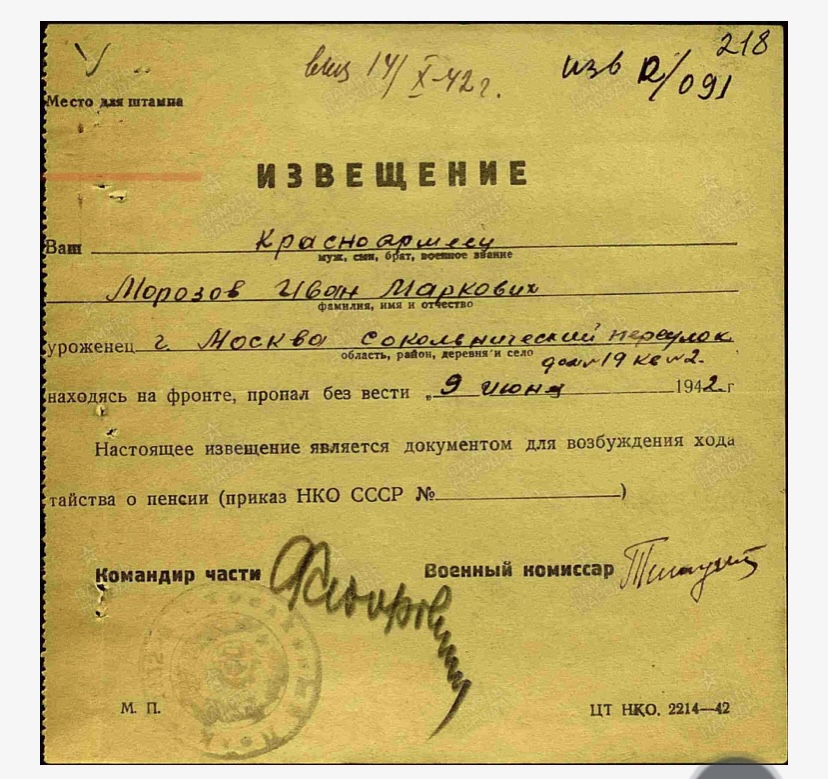 218
14/X-42г.
изв R/091
Место для штампа
ИЗВЕЩЕНИЕ
Ваш Красноармеец
муж, сын, брат, военное звание
Морозов Иван Маркович
фамилия, имя и отчество
уроженец г. Москва Сокольнический переулок
область, район, деревня и село
дом 19 кв 2.
находясь на фронте, пропал без вести „9 июня 1942.г
Настоящее извещение является документом для возбуждения хода
тайства о пенсии (приказ НКО СССР №)
Командир части Военный комиссар
М. П.
ЦТ НКО. 2214—42